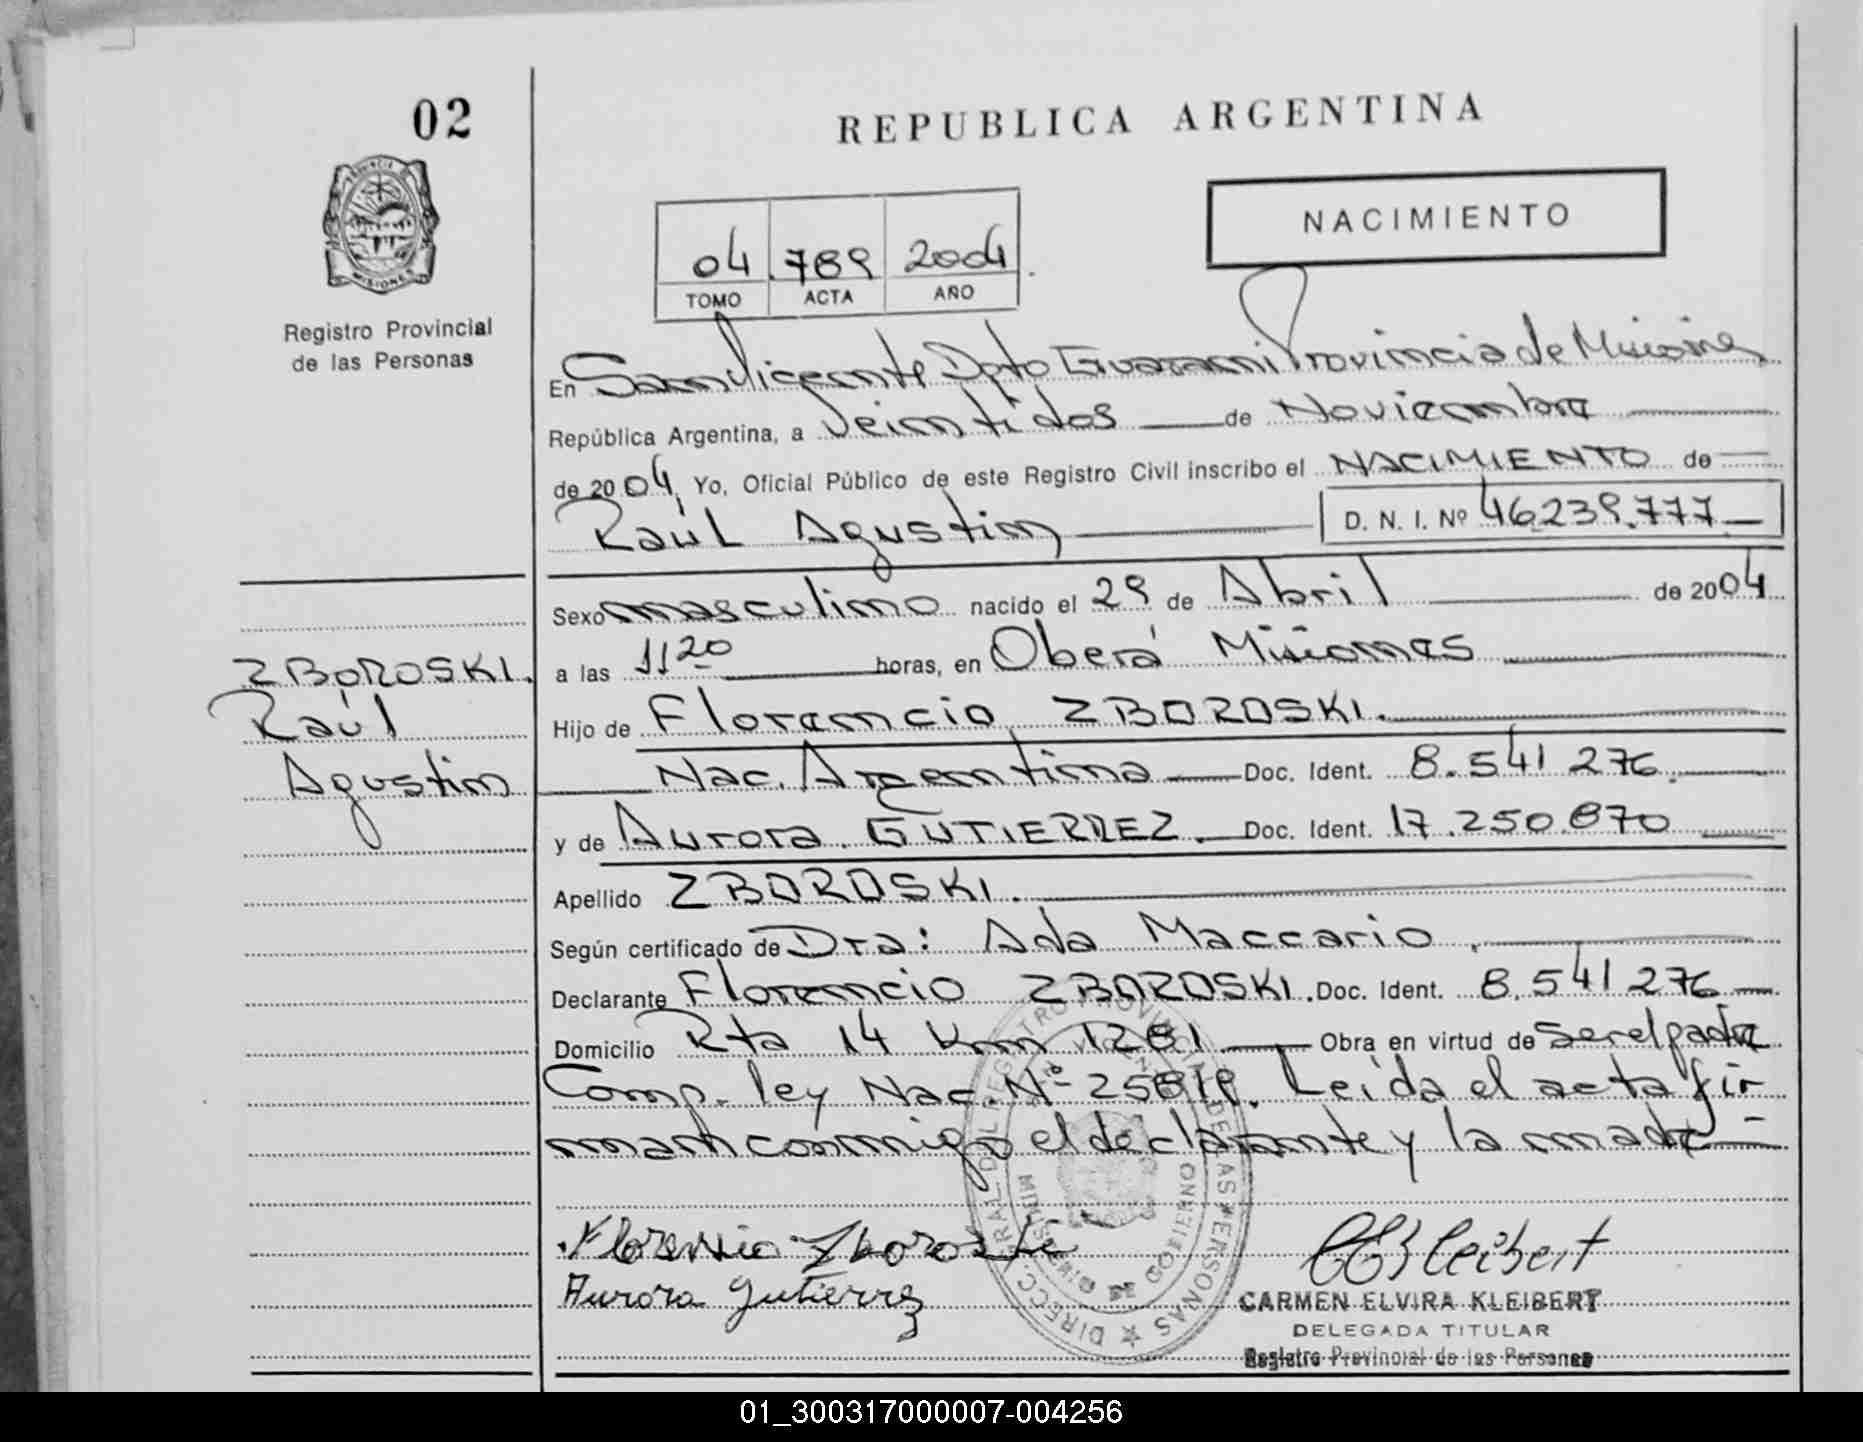 02
REPUBLICA ARGENTINA
PROVINCIA
MISIONES
Registro Provincial
de las Personas
NACIMIENTO
04 789 2004
TOMO ACTA AÑO
En San Vicente Dpto Guarani Provincia de Misiones
República Argentina, a Veintidos de Noviembre
de 2004, Yo, Oficial Público de este Registro Civil inscribo el NACIMIENTO de
Raúl Agustin D. N. I. Nº 46.239.777
Sexo masculino nacido el 29 de Abril de 2004
a las 11 20 horas, en Oberá Misiones
ZBOROSKI.
Raúl
Agustin
Hijo de Florencio ZBOROSKI.
Nac. Argentina Doc. Ident. 8.541 276.
y de Aurora GUTIERREZ. Doc. Ident. 17.250.870
Apellido ZBOROSKI.
Según certificado de Dra: Ada Maccario.
Declarante Florencio ZBOROSKI. Doc. Ident. 8.541 276
Domicilio Rta 14 Km 1281 Obra en virtud de Ser el padre
Comp. ley Nac. Nº 25819. Leida el acta fir
man conmigo el declarante y la madre
Florencio Zboroski
Aurora Gutierrez
CEKleibert
CARMEN ELVIRA KLEIBERT
DELEGADA TITULAR
Registro Provincial de las Personas
DIRECC. GRAL. DEL REGISTRO PROVINCIAL DE LAS PERSONAS
MINISTERIO DE GOBIERNO
01_300317000007-004256